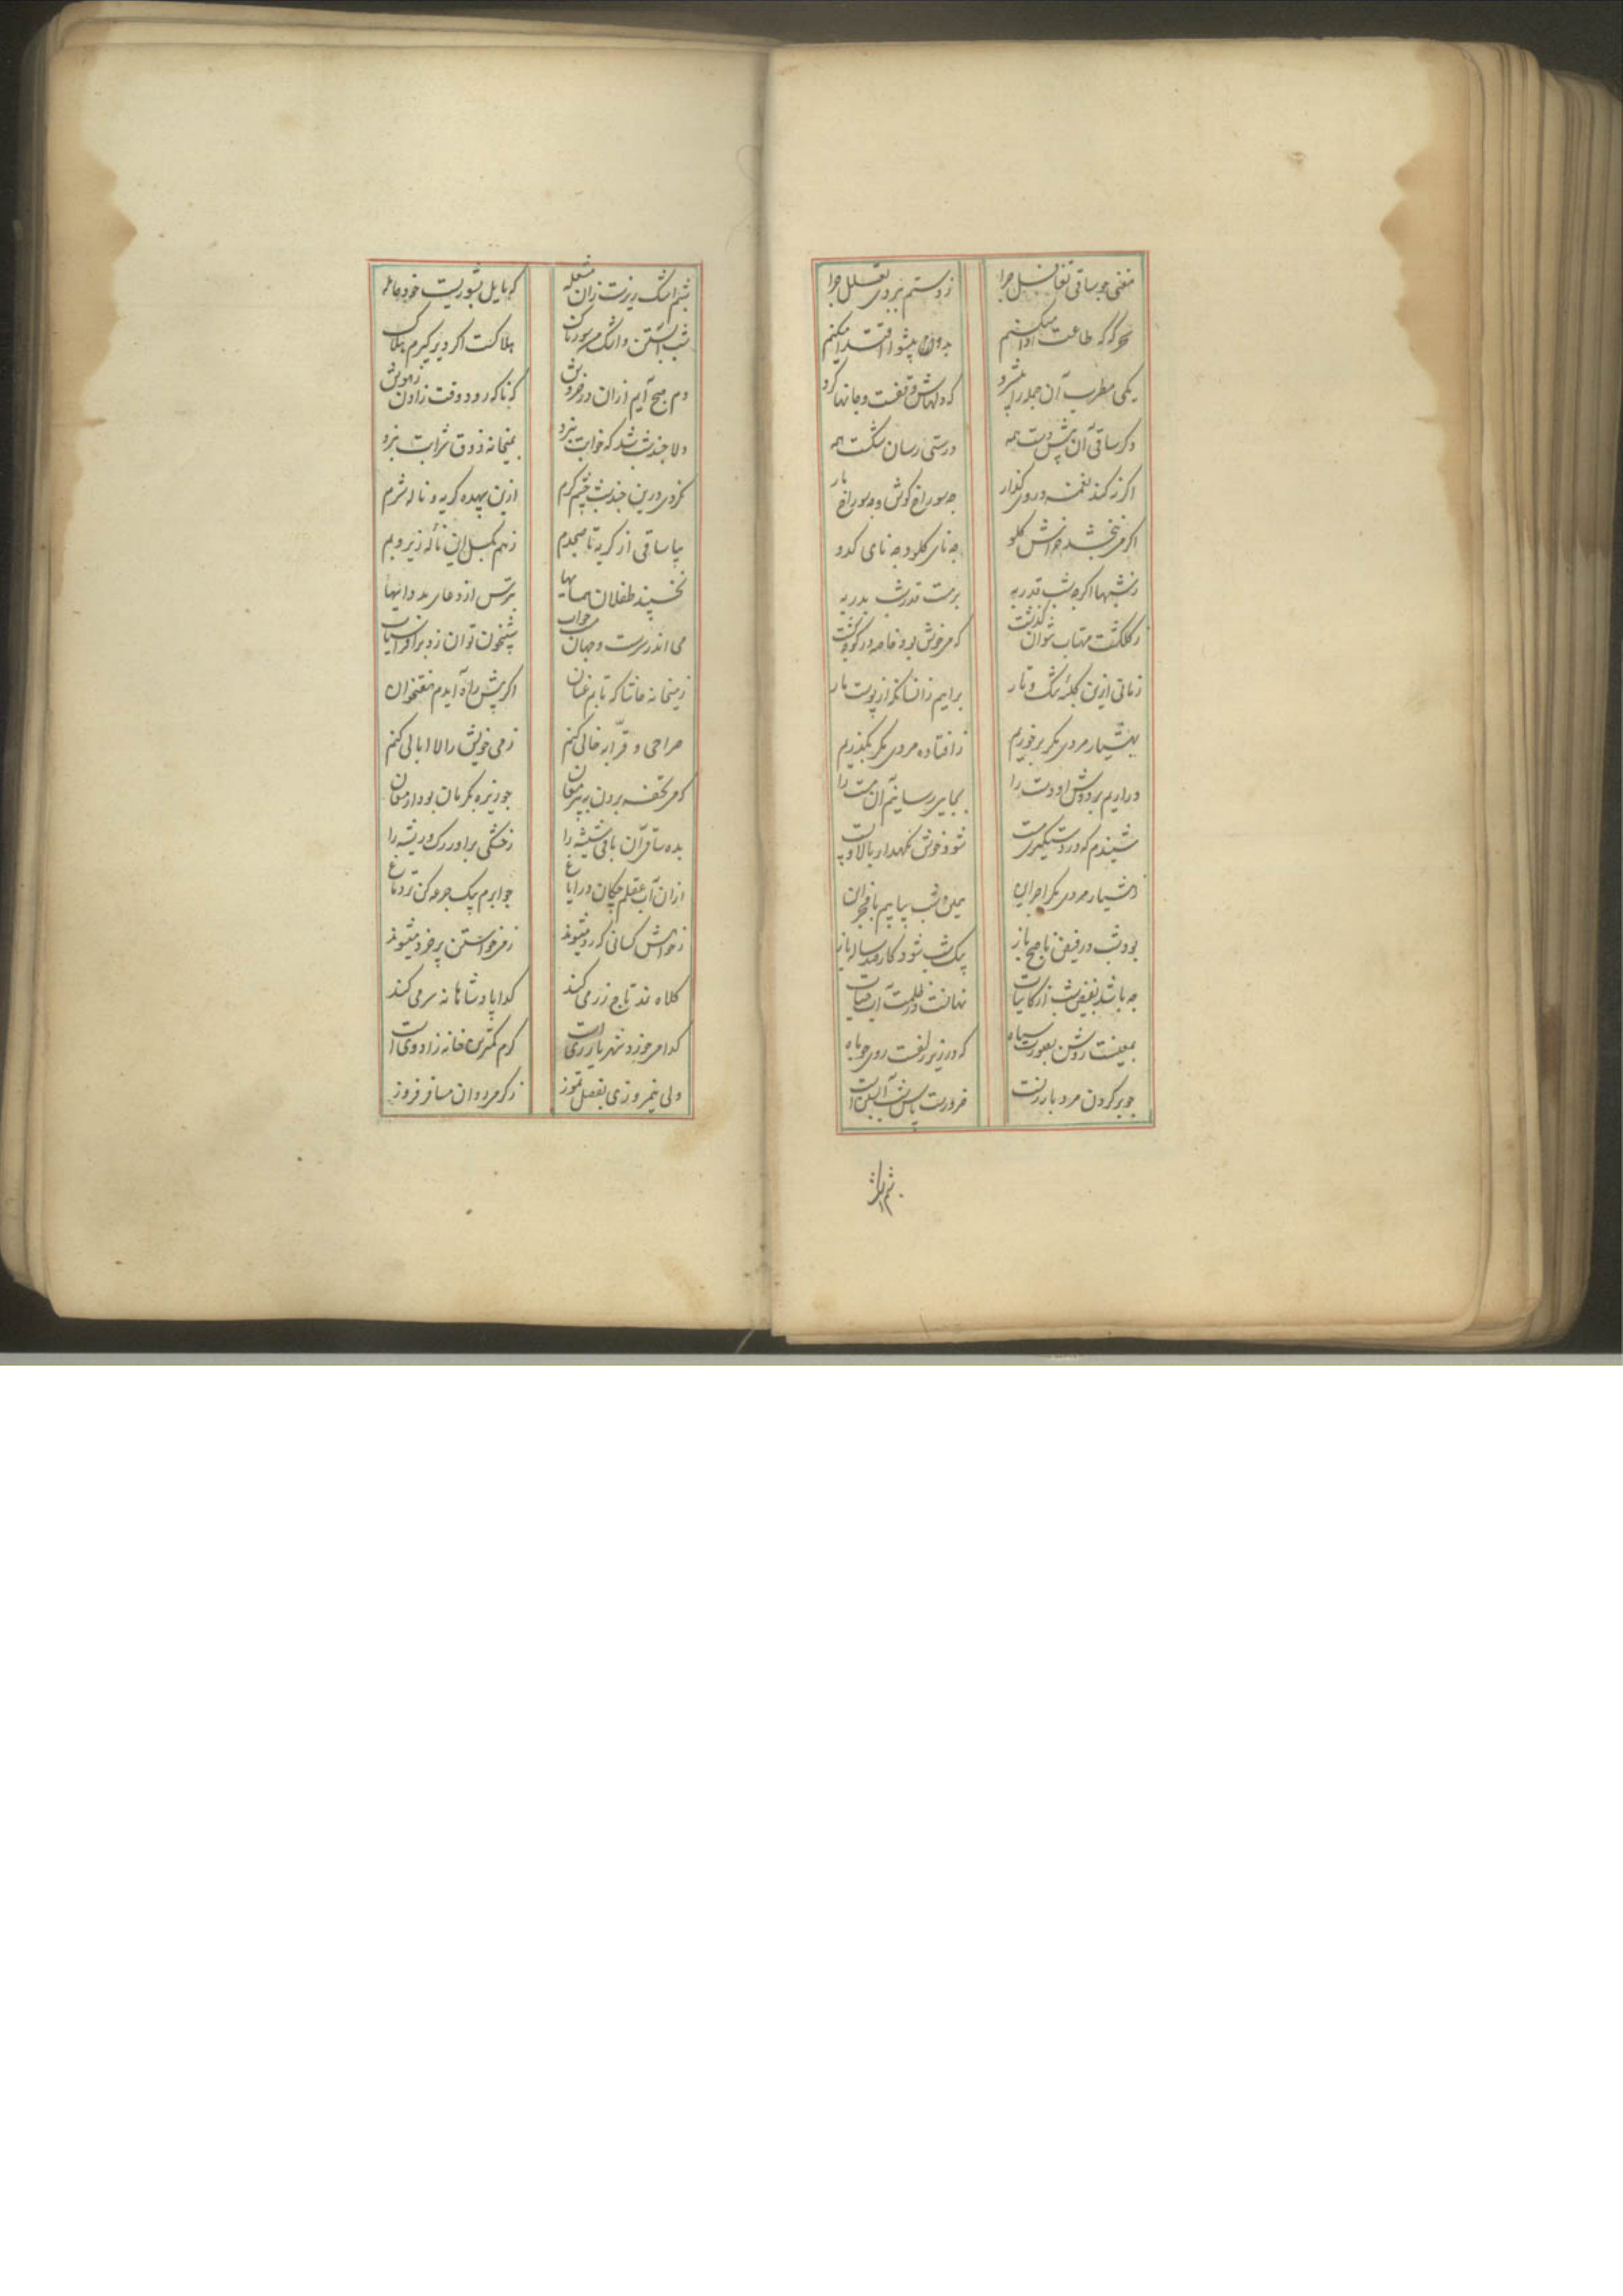 مغنی چو ساقی تغافل چرا
ز دستم بروی تعلل چرا
سحرگه که طاعت ادا میکنیم
بدو پیشوا اقتدا میکنیم
یکی مطرب آن
که دلهاش وقفست و جانها گرو
دگر ساقی آن پیش دست همه
درستی رسان شکست همه
اگر زر کند نغمه در وی گذار
چه سوراخ گوش و چه سوراخ مار
اگر می نبخشد خراش گلو
چه نای گلو و چه نای کدو
ز شبها اگرچه شب قدر به
برمت قدرشب بدر به
ز گلگشت مهتاب نتوان گذشت
که می خوش بود خاصه در
زمانی ازین کلبهٔ تنگ و تار
برایم زانسان که از پوست مار
بهشیار مردی مگر برخوریم
ز افتاده مردی مگر بگذریم
دراریم بر دوش او دست را
بجایی رسانیم آن مست را
شنیدم که در دستگیریست
شود خوش نگهدار بالا و پست
هشیار مردی مگر
شب بیابیم با
بود شب در فیض تا صبح باز
بیک شب شود کار صد ساله باز
چه باشد بفیض شب از کاینات
نهانست در ظلمت آب حیات
بمعنیست روشن بصورت سیاه
که در زیر زلفست روی چو ماه
چو بر گردن مرد بار زنست
ضرورت
شبم اشک ریزست زان مشعله
که مایل بشوریست خود حامله
شب آبستن و اشک من
هلاکست اگر دیر گیرم هلاک
دم صبح آیم ازان در خروش
که ناگه رود وقت زادن ز هوش
دلا چند شب شد که خوابت نبرد
بمیخانه ذوق شرابت نبرد
نکردی درین چند شب چشم گرم
ازین بیهده گریه و ناله شرم
بیا ساقی از گریه تا صبحدم
ز هم بگسل این نالهٔ زیر و بم
نخسپند طفلان همسایها
بترس از دعای بد دایها
می اندر سرست و جهان خراب
شبیخون توان زد بر افراسیاب
ز میخانه حاشا که تابم عنان
اگر پیش راه آیدم هفتخوان
صراحی و قرابه خالی کنم
ز می خویش را لاابالی کنم
که می تحفه بردن به پیر مغان
چو زیره بکرمان بود ارمغان
بده ساقی آن باقی شیشه را
ز خشکی براور رگ و ریشه را
ازان آب عقلم چکان در ایاغ
چو ابرم بیک جرعه کن تر دماغ
ز خواهش کسانی که رد میشوند
ز می خواستن پر خرد میشوند
کلاه نمد تاج زر می کند
گدا پادشاهانه سر می کند
گدا می خورد شهریاری است
کرم کمترین خانه زاد وی است
ولی نیمروزی بفصل تموز
ز گرمی دوان مسافر فروز